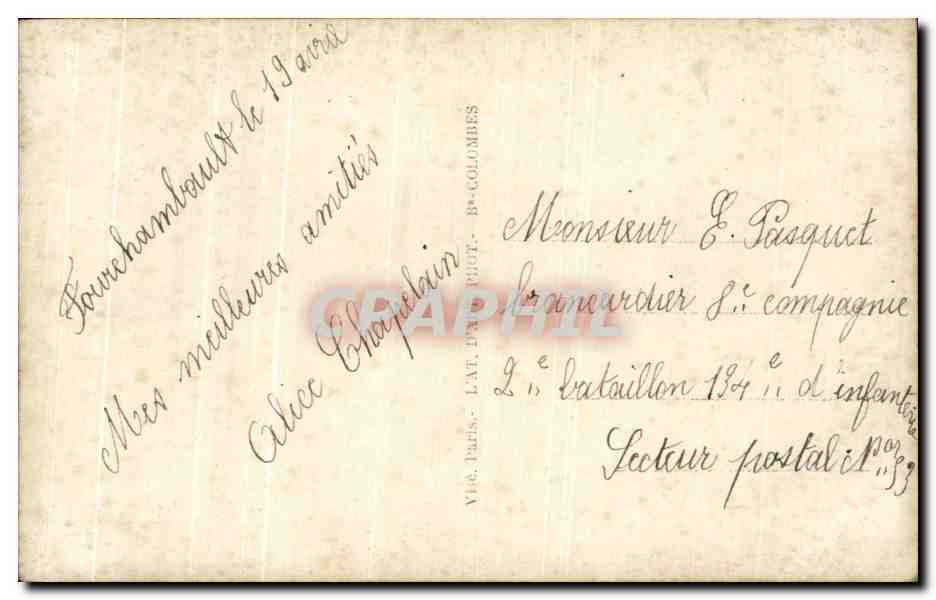 Fourchambault le 19 avril
Mes meilleures amitiés
Alice Chapelain
L'AT. D'ART PHOT. - Bs-COLOMBES
Paris.
CPAPHIL
Monsieur E. Pasquet
8e compagnie
2e bataillon 134e d'infanterie
Secteur postal No 53